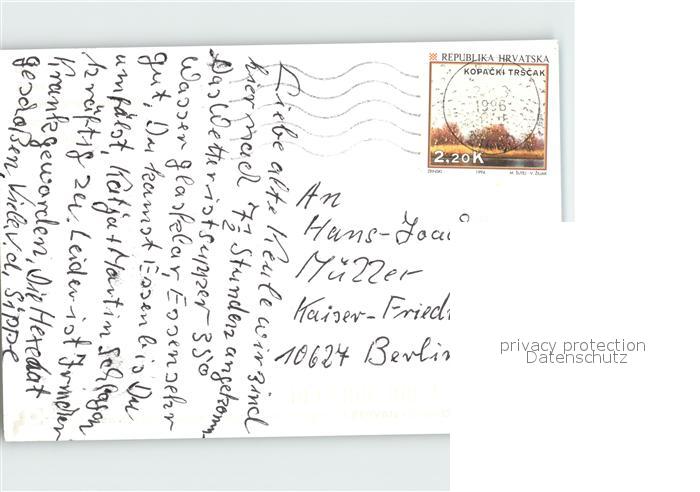 REPUBLIKA HRVATSKA
KOPAČKI TRŠČAK
1996
2,20K
ZRINSKI 1994 M. ŠUTEJ - V. ŽILJAK
Liebe alte Keule wir sind
hier nach 7½ Stunden angekomm.
Das Wetter ist supper 35°
Wasser glasklar, Essen sehr
gut, Du kannst Essen bis Du
umfälst, Katja + Martin schlagen
kräftig zu. Leider ist
krank geworden, Die Hexe hat
geschoßen, Viele. d. Sippe
An
Hans-Joa
Müller
Kaiser-Friedr
10627 Berlin
privacy protection
Datenschutz